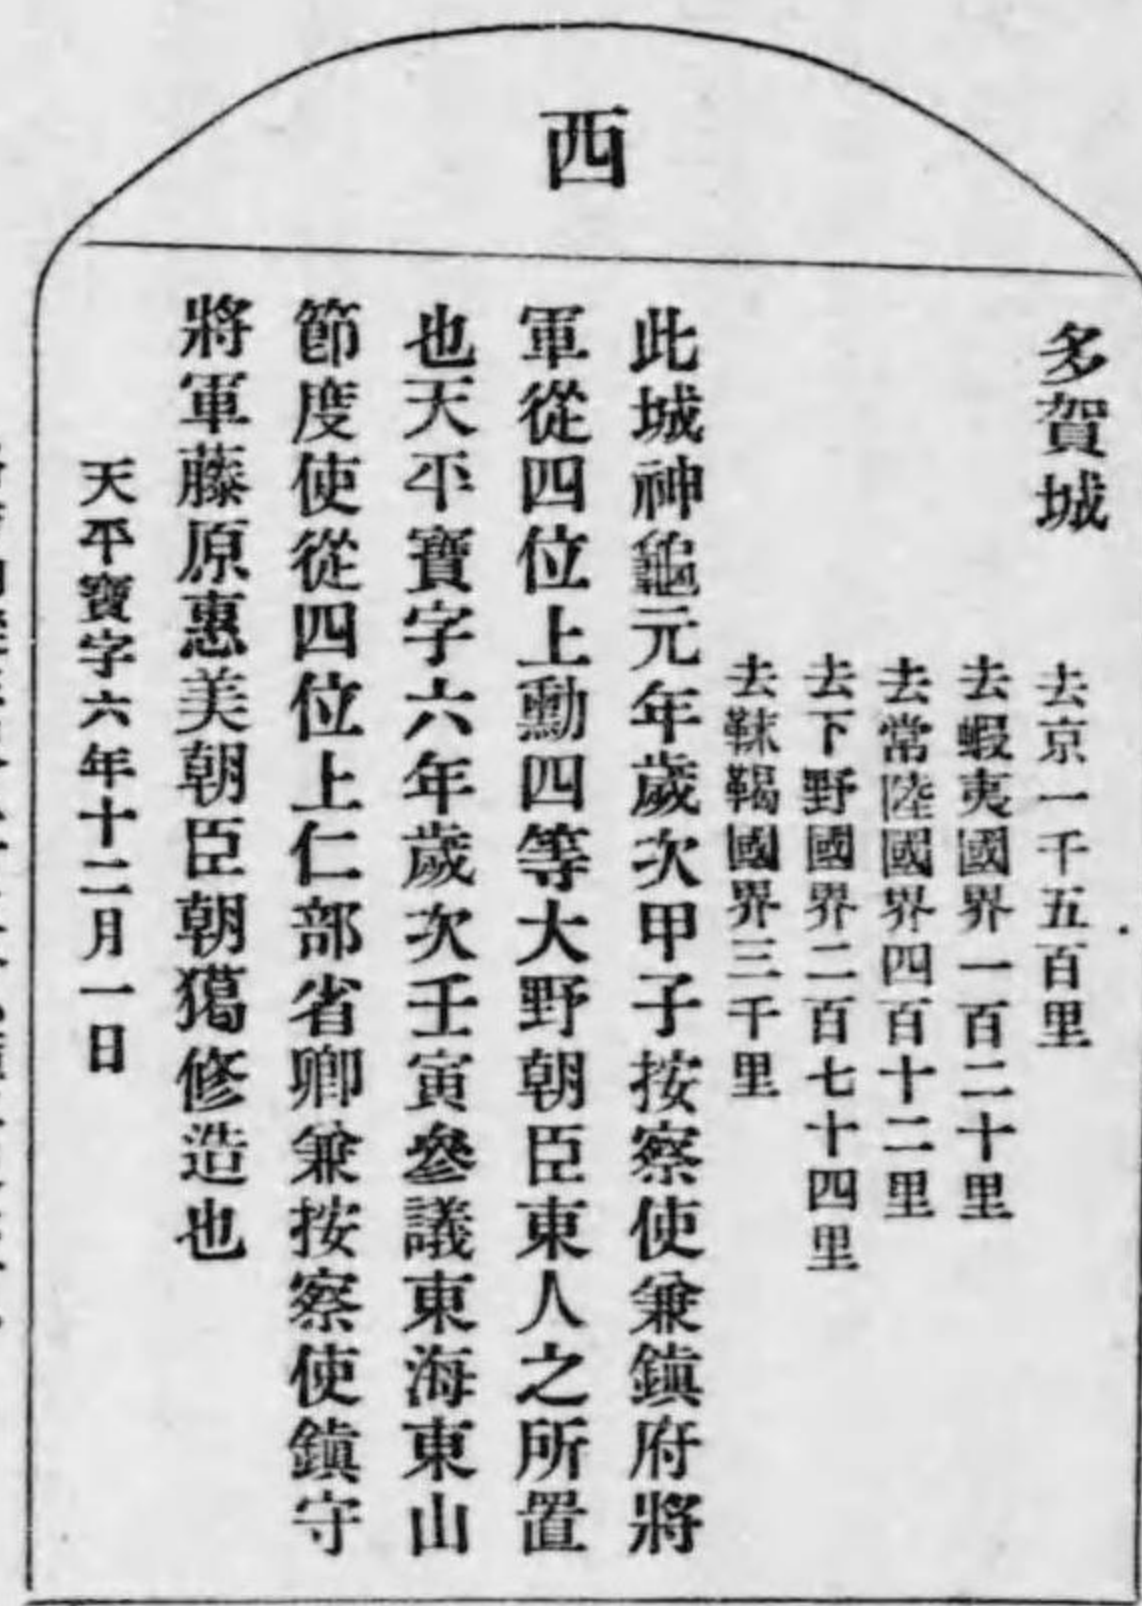 西
多賀城
去京一千五百里
去蝦夷國界一百二十里
去常陸國界四百十二里
去下野國界二百七十四里
去靺鞨國界三千里
此城神龜元年歲次甲子按察使兼鎭府將
軍從四位上勳四等大野朝臣東人之所置
也天平寶字六年歲次壬寅參議東海東山
節度使從四位上仁部省卿兼按察使鎭守
將軍藤原惠美朝臣朝獦修造也
天平寶字六年十二月一日